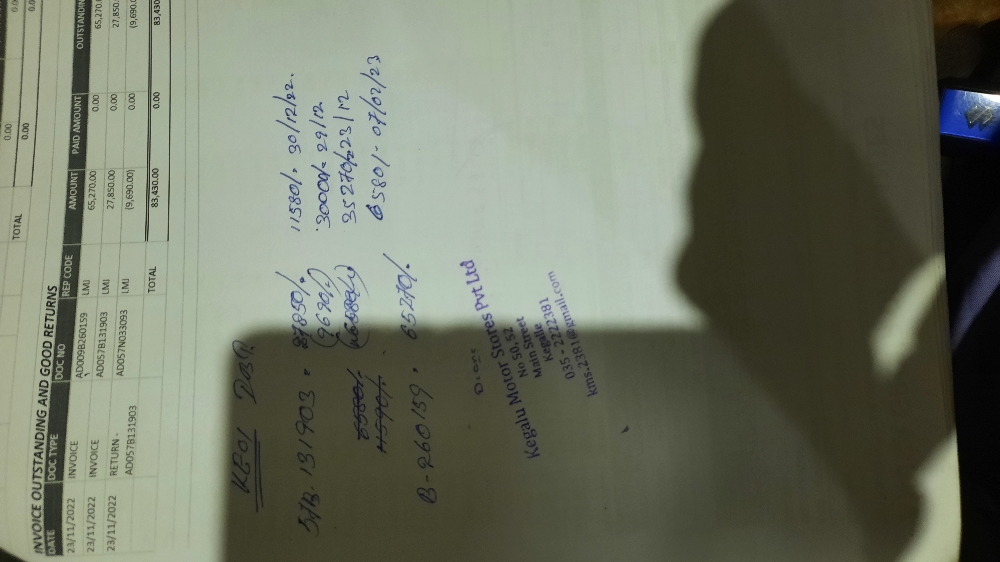 0.00 0.00
TOTAL 0.00 0.00
INVOICE OUTSTANDING AND GOOD RETURNS
DATE DOC TYPE DOC NO REP CODE AMOUNT PAID AMOUNT OUTSTANDIN
23/11/2022 INVOICE AD009B260159 LMJ 65,270.00 0.00 65,270.0
23/11/2022 INVOICE AD057B131903 LMJ 27,850.00 0.00 27,850.
23/11/2022 RETURN - AD057N033093 LMJ (9,690.00) 0.00 (9,690.0
AD057B131903
TOTAL 83,430.00 0.00 83,430
KE01
57B. 131903 = 27850/. 11580/. 30/12/22.
(9690/.) 30000/. 29/12
35270/. 23/12
6580/. 07/02/23
B-260159. 65270/.
Kegalu Motor Stores Pvt Ltd
No 50, 52
Main Street
Kegalle
035 - 2222381
kms2381@gmail.com